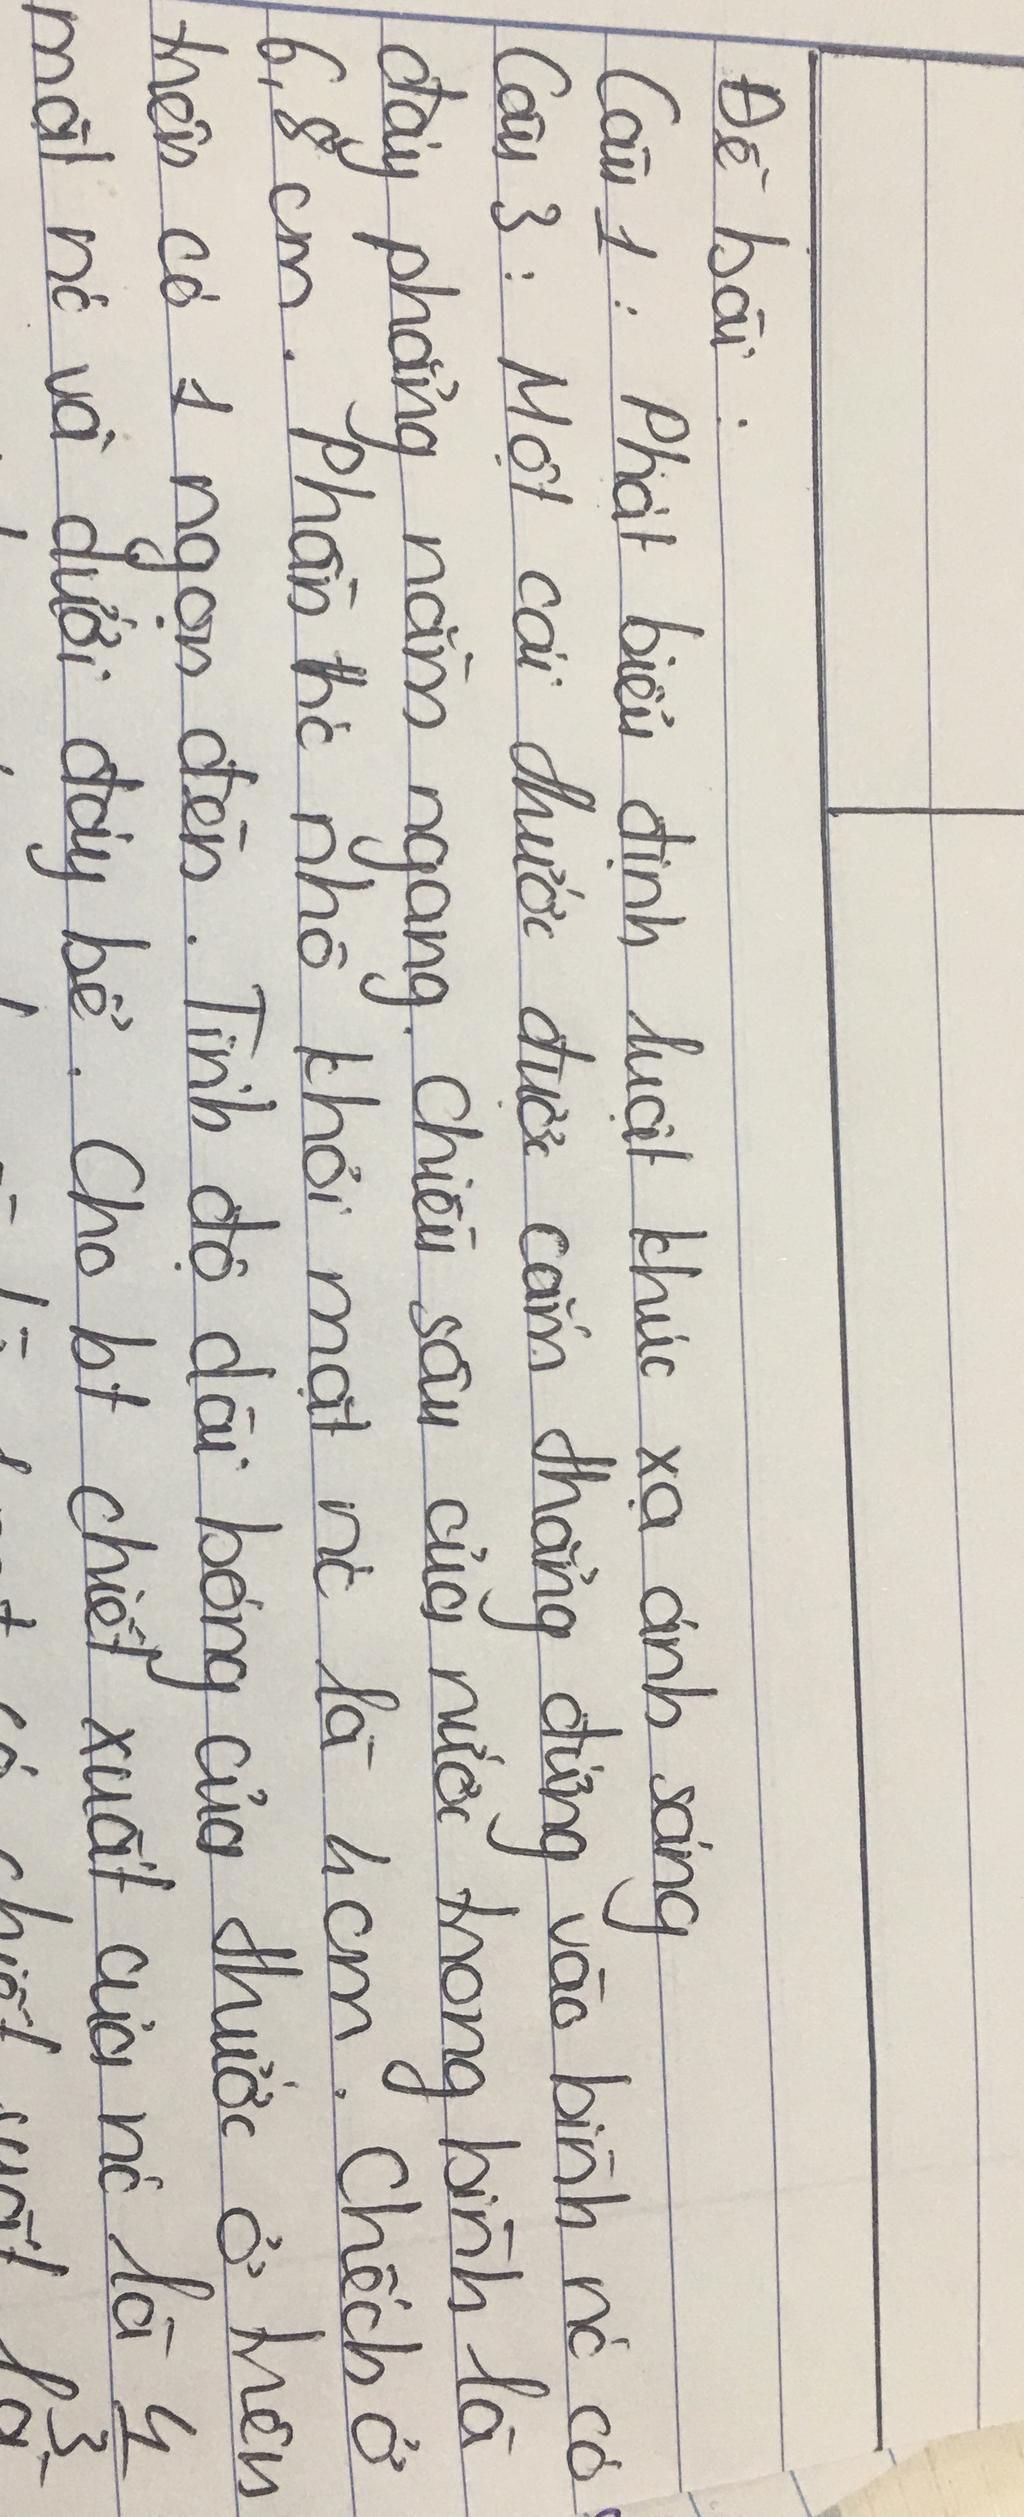 Đề bài:
Câu 1: Phát biểu định luật khúc xạ ánh sáng
Câu 3: Một cái thước được cắm thẳng đứng vào bình nc có
đáy phẳng nằm ngang. Chiều sâu của nước trong bình là
6,8 cm. Phần thc nhô khỏi mặt nc là 4cm. Chếch ở
trên có 1 ngọn đèn. Tính độ dài bóng của thước ở trên
mặt nc và dưới đáy bể. Cho bt chiết xuất của nc là 4/3